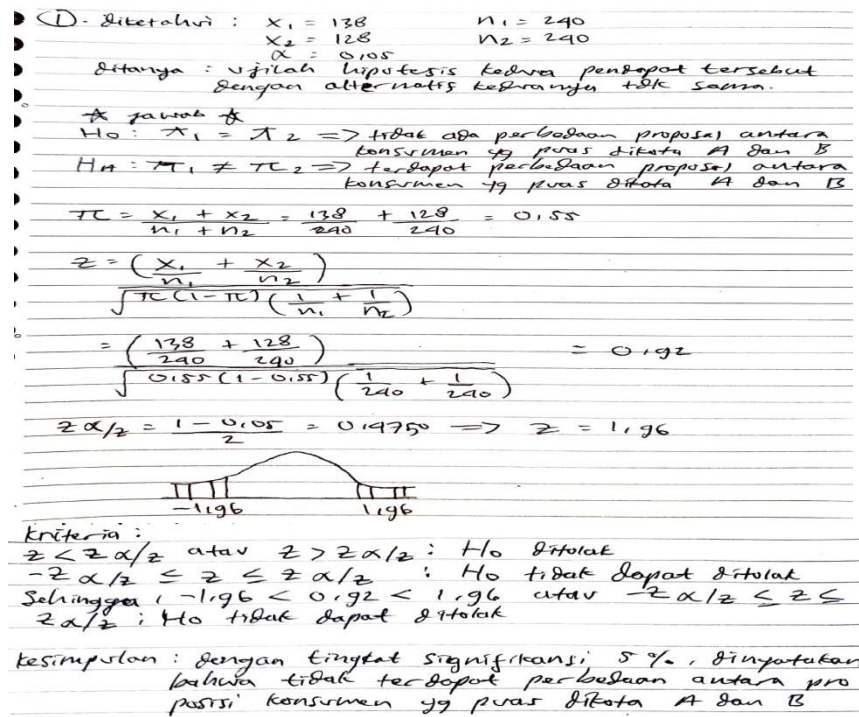 ① - Diketahui : x₁ = 138 n₁ = 240
x₂ = 128 n₂ = 240
α = 0,05
Ditanya : ujilah hipotesis kedua pendapat tersebut
dengan alternatif keduanya tdk sama.
☆ jawab ☆
H₀ : π₁ = π₂ => tidak ada perbedaan proposal antara
konsumen yg puas dikota A dan B
HA : π₁ ≠ π₂ => terdapat perbedaan proposal antara
konsumen yg puas dikota A dan B
π = (x₁ + x₂)/(n₁ + n₂) = 138/240 + 128/240 = 0,55
z = (x₁/n₁ + x₂/n₂) / √(π(1-π)(1/n₁ + 1/n₂))
= (138/240 + 128/240) / √(0,55(1-0,55)(1/240 + 1/240)) = 0,92
z α/2 = (1 - 0,05)/2 = 0,4750 => z = 1,96
-1,96 1,96
kriteria :
z < z α/2 atau z > z α/2 : H₀ ditolak
-z α/2 ≤ z ≤ z α/2 : H₀ tidak dapat ditolak
Sehingga, -1,96 < 0,92 < 1,96 atau -z α/2 ≤ z ≤
z α/2 : H₀ tidak dapat ditolak
kesimpulan : dengan tingkat signifikansi 5 %, dinyatakan
bahwa tidak terdapat perbedaan antara pro
posisi konsumen yg puas dikota A dan B